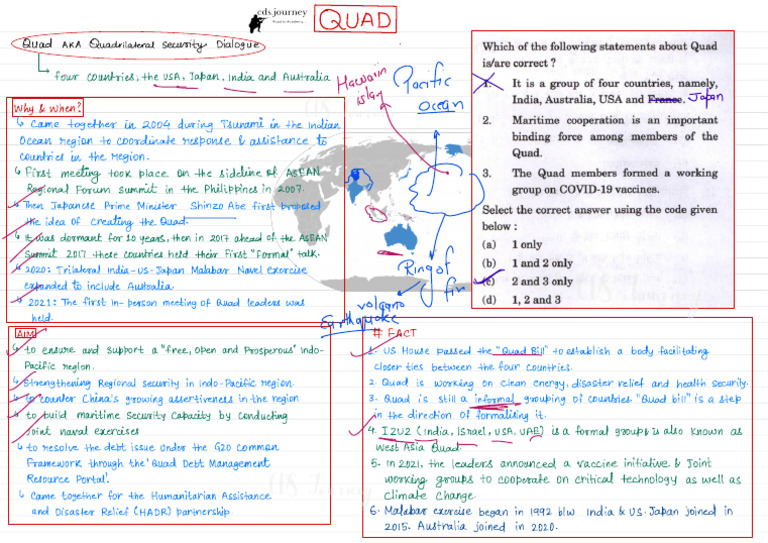 cds.journey
QUAD
Quad AKA Quadrilateral Security Dialogue
four countries; the USA, Japan, India and Australia
Why & When?
Came together in 2004 during Tsunami in the Indian
Ocean region to coordinate response & assistance to
countries in the region.
First meeting took place on the sideline of ASEAN
Regional Forum summit in the Philippines in 2007.
Then Japanese Prime Minister Shinzo Abe first proposed
the idea of creating the Quad.
It was dormant for 10 years, then in 2017 ahead of the ASEAN
Summit 2017 these countries held their first "Formal" talk.
2020: Trilateral India-US-Japan Malabar Navel exercise
expanded to include Australia
2021: The first in-person meeting of Quad leaders was
held.
Hawaiin
islan
Pacific
Ocean
Ring of
fire
volcano
Earthquake
Which of the following statements about Quad
is/are correct ?
1. It is a group of four countries, namely,
India, Australia, USA and France. Japan
2. Maritime cooperation is an important
binding force among members of the
Quad.
3. The Quad members formed a working
group on COVID-19 vaccines.
Select the correct answer using the code given
below :
(a) 1 only
(b) 1 and 2 only
(c) 2 and 3 only
(d) 1, 2 and 3
Aim
to ensure and support a "free, open and Prosperous" Indo-
Pacific region.
Strengthening Regional security in Indo-Pacific region.
to counter China's growing assertiveness in the region
to build maritime Security Capacity by conducting
Joint naval exercises
to resolve the debt issue under the G20 Common
Framework through the 'Quad Debt Management
Resource Portal'.
Came together for the Humanitarian Assistance
and Disaster Relief (HADR) partnership.
# FACT
1. US House passed the "Quad Bill" to establish a body facilitating
closer ties between the four countries.
2. Quad is working on clean energy, disaster relief and health security.
3. Quad is still a informal grouping of countries "Quad bill" is a step
in the direction of formalising it.
4. I2U2 (India, Israel, USA, UAE) is a formal group & is also known as
West Asia Quad
5. In 2021, the leaders announced a vaccine initiative & Joint
working groups to cooperate on critical technology as well as
climate change.
6. Malabar exercise began in 1992 b/w India & US. Japan joined in
2015. Australia joined in 2020.